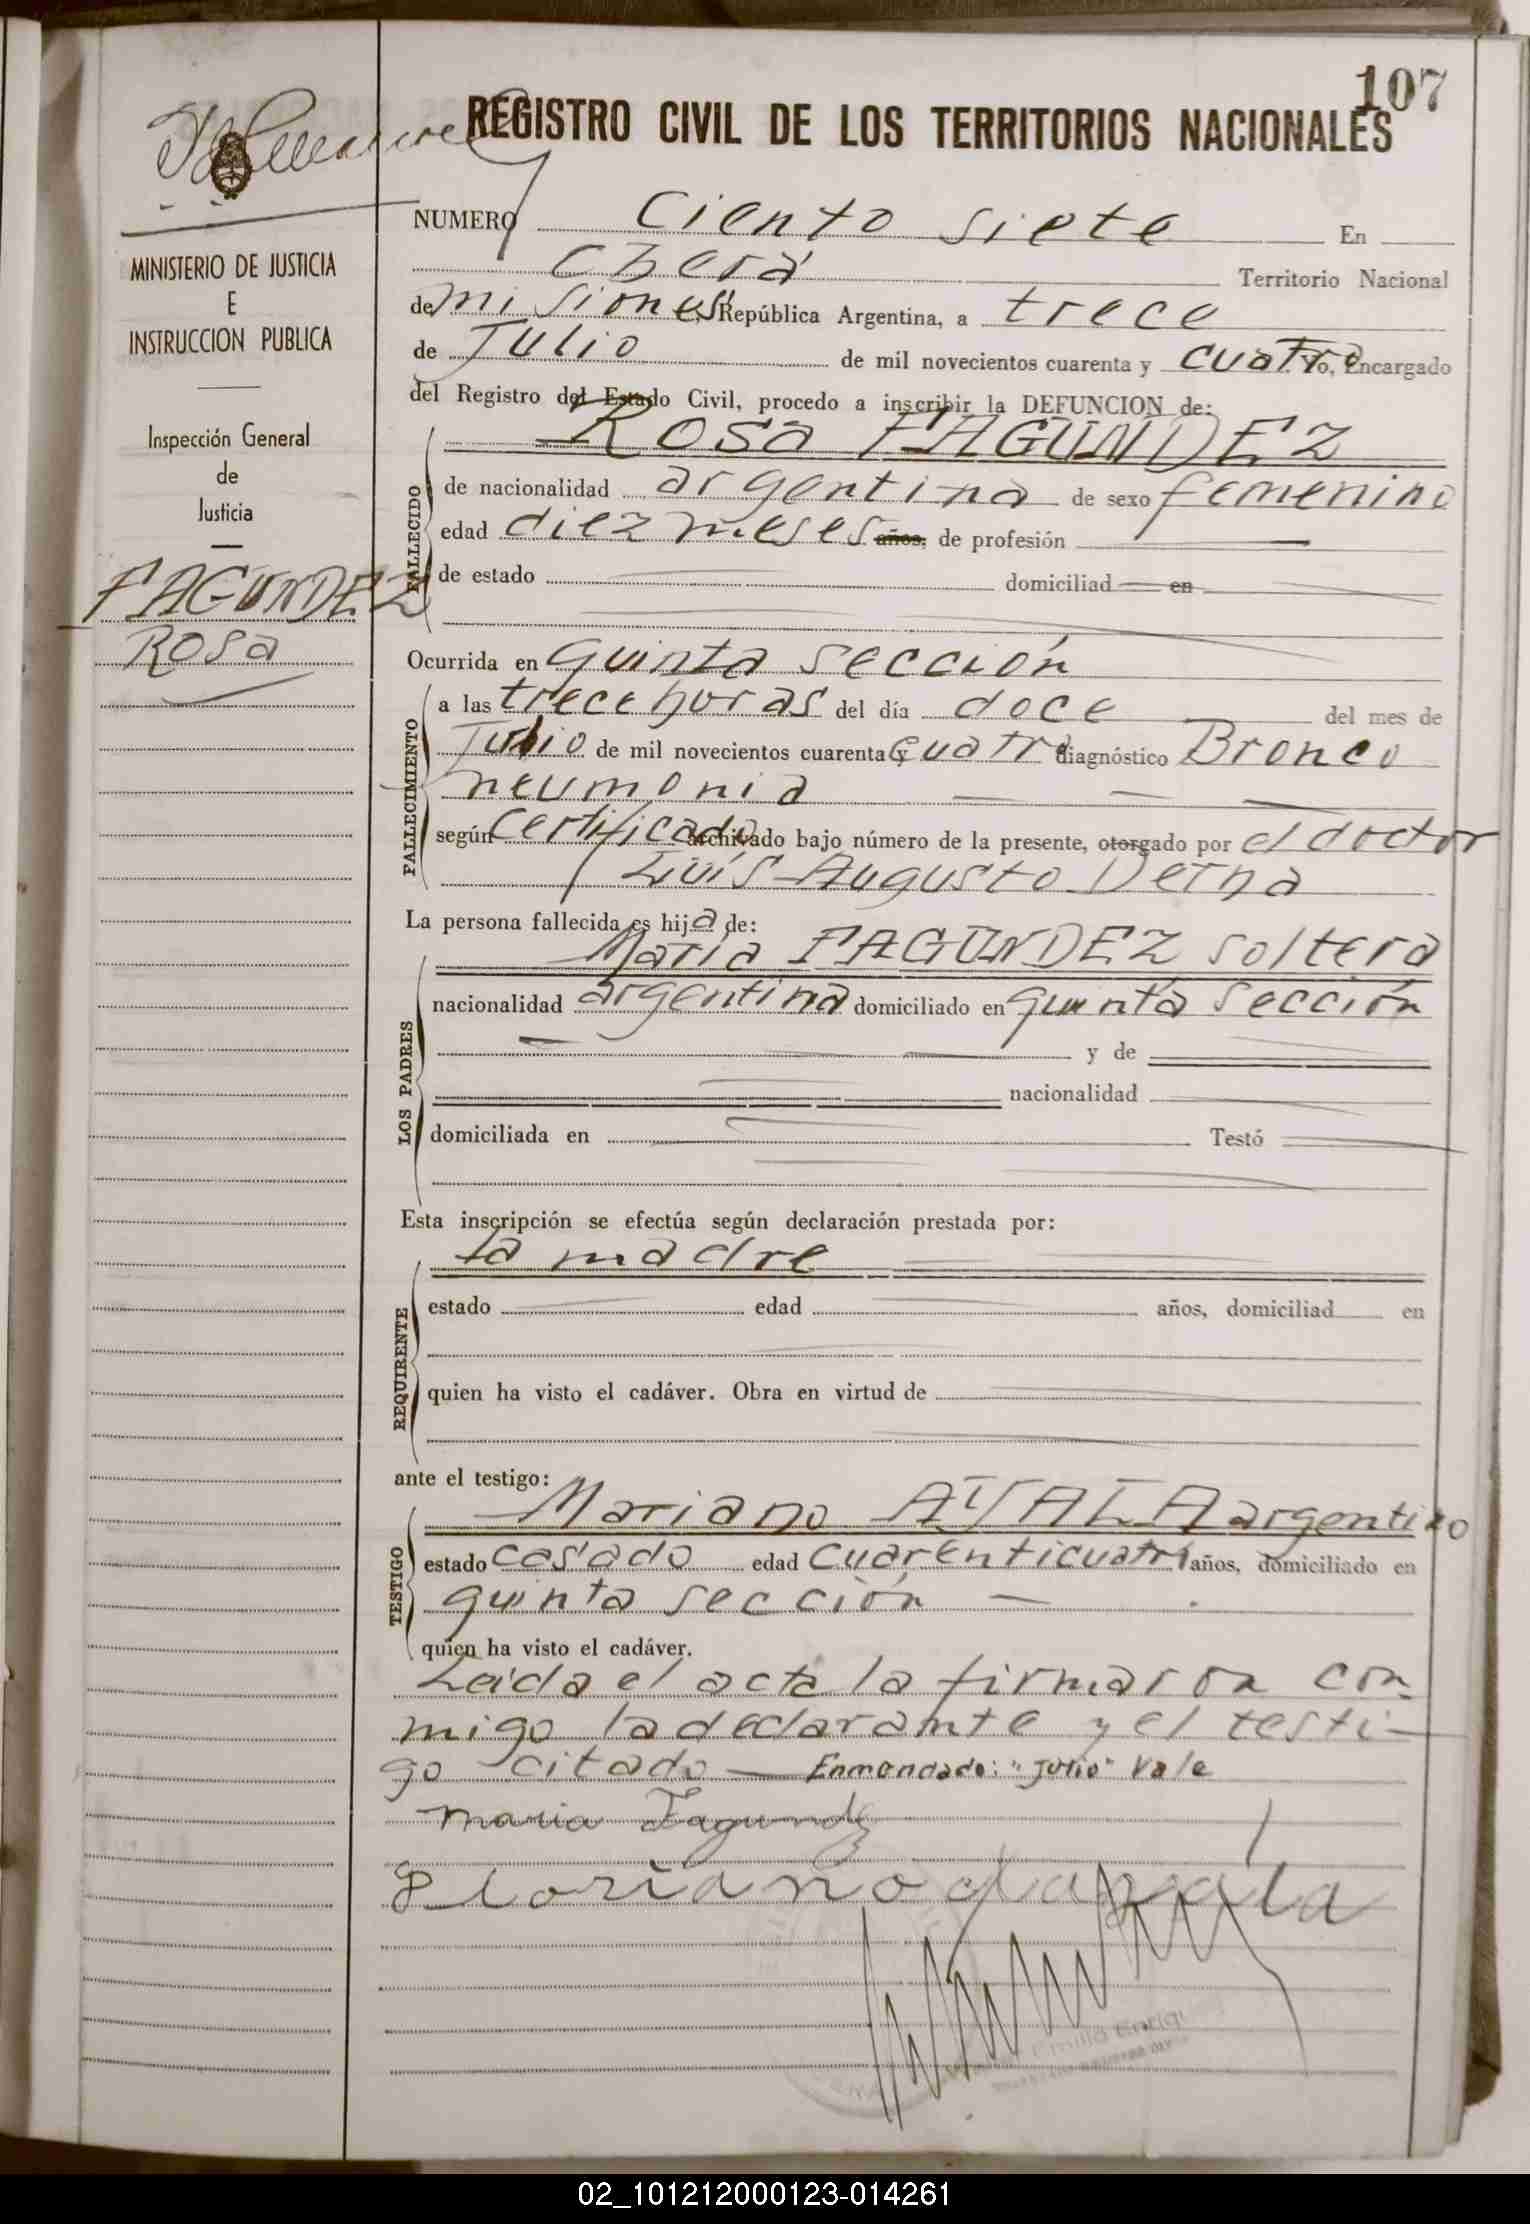 107
REGISTRO CIVIL DE LOS TERRITORIOS NACIONALES
MINISTERIO DE JUSTICIA
E
INSTRUCCION PUBLICA
Inspección General
de
Justicia
FAGUNDEZ
Rosa
NUMERO Ciento siete En
Oberá Territorio Nacional
de misiones, República Argentina, a trece
de Julio de mil novecientos cuarenta y cuatro Yo, Encargado
del Registro del Estado Civil, procedo a inscribir la DEFUNCION de:
Rosa FAGUNDEZ
FALLECIDO
de nacionalidad argentina de sexo femenino
edad diez meses años, de profesión
de estado domiciliad en
Ocurrida en quinta sección
FALLECIMIENTO
a las trece horas del día doce del mes de
Julio de mil novecientos cuarenta y cuatro diagnóstico Bronco
neumonia
según certificado archivado bajo número de la presente, otorgado por el doctor
Luís Augusto Derna
La persona fallecida es hija de:
LOS PADRES
María FAGUNDEZ soltera
nacionalidad argentina domiciliado en quinta sección
y de
nacionalidad
domiciliada en Testó
Esta inscripción se efectúa según declaración prestada por:
REQUIRENTE
la madre
estado edad años, domiciliad en
quien ha visto el cadáver. Obra en virtud de
ante el testigo:
TESTIGO
Mariano AYALA argentino
estado casado edad cuarenticuatro años, domiciliado en
quinta sección
quien ha visto el cadáver.
Leida el acta la firmaron con-
migo la declarante y el testi-
go citado — Enmendado: "Julio" Vale
maria Fagundez
02_101212000123-014261